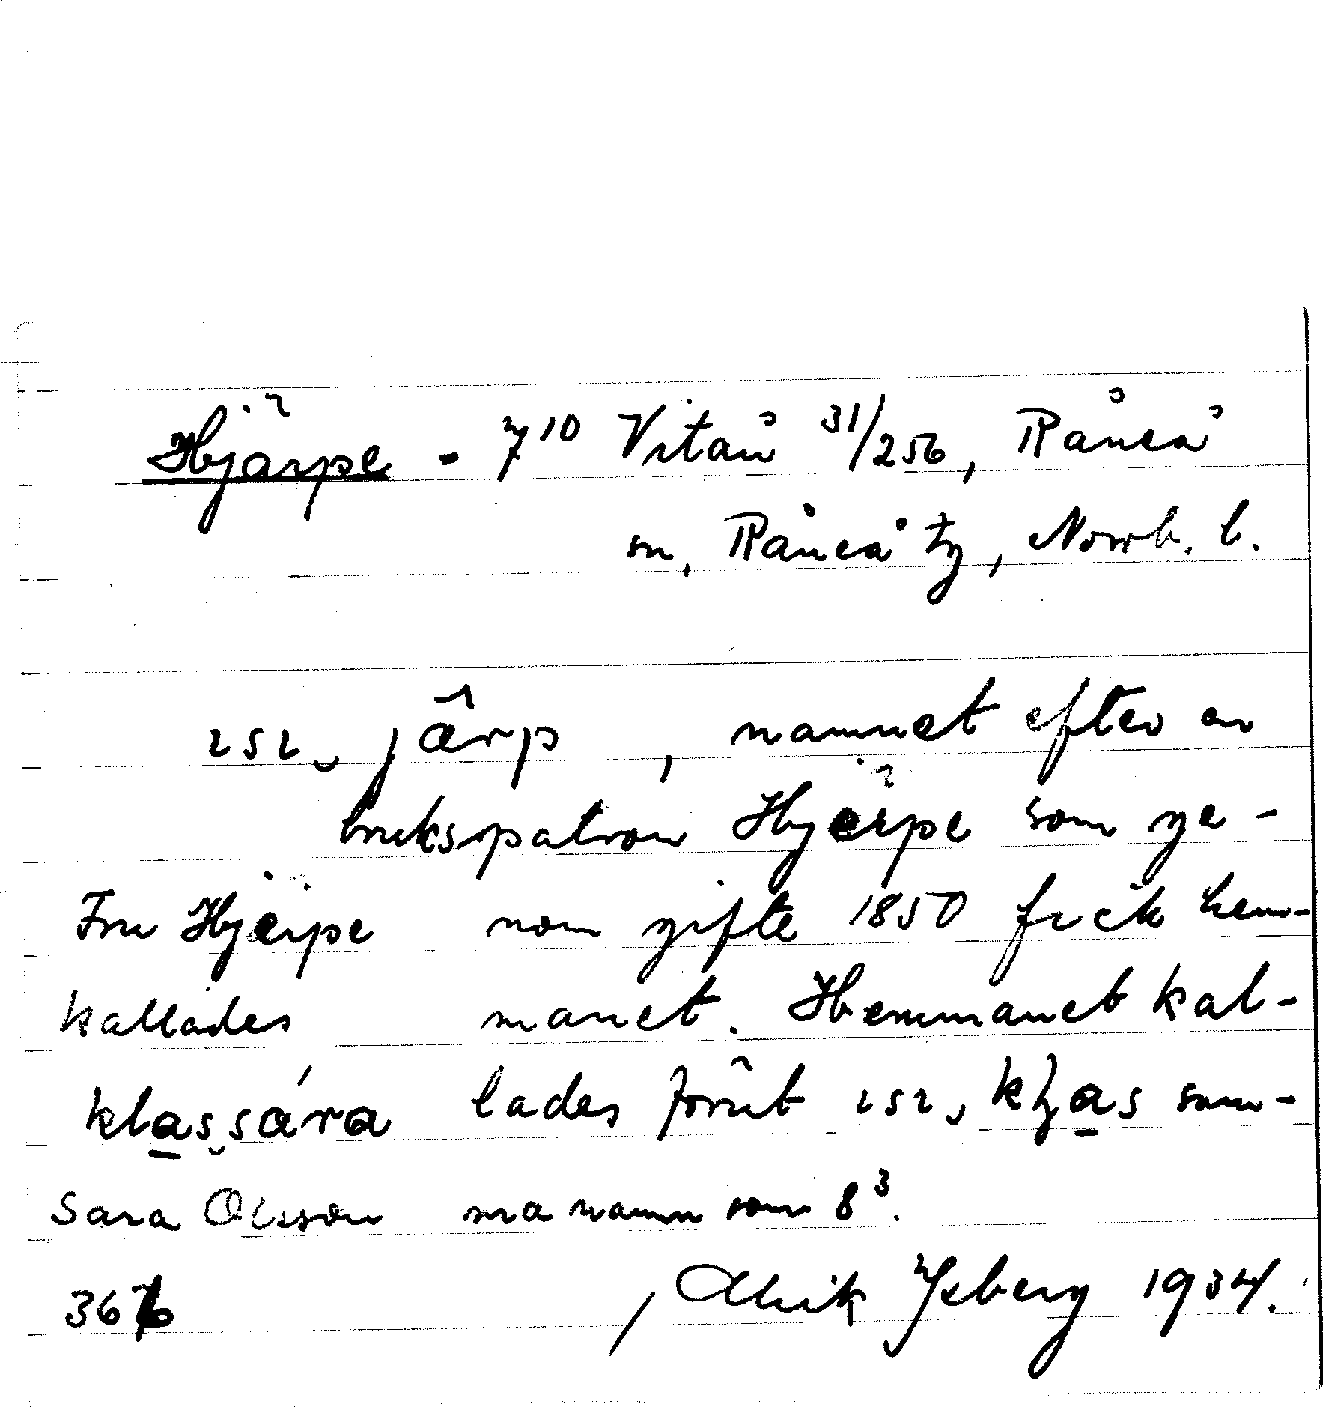 Hjärpe - 7¹⁰ Vitån 31/256, Råneå
sn, Råneå tg, Norrb. l.
ısı, järp , namnet efter en
brukspatron Hjärpe som ge-
Fru Hjärpe nom gifte 1850 fick hem-
kallades manet. Hemmanet kal-
klassára lades förut ısı, klas sam-
Sara Olsson ma namn som 8³.
3676 / Alvik Ysberg 1934.